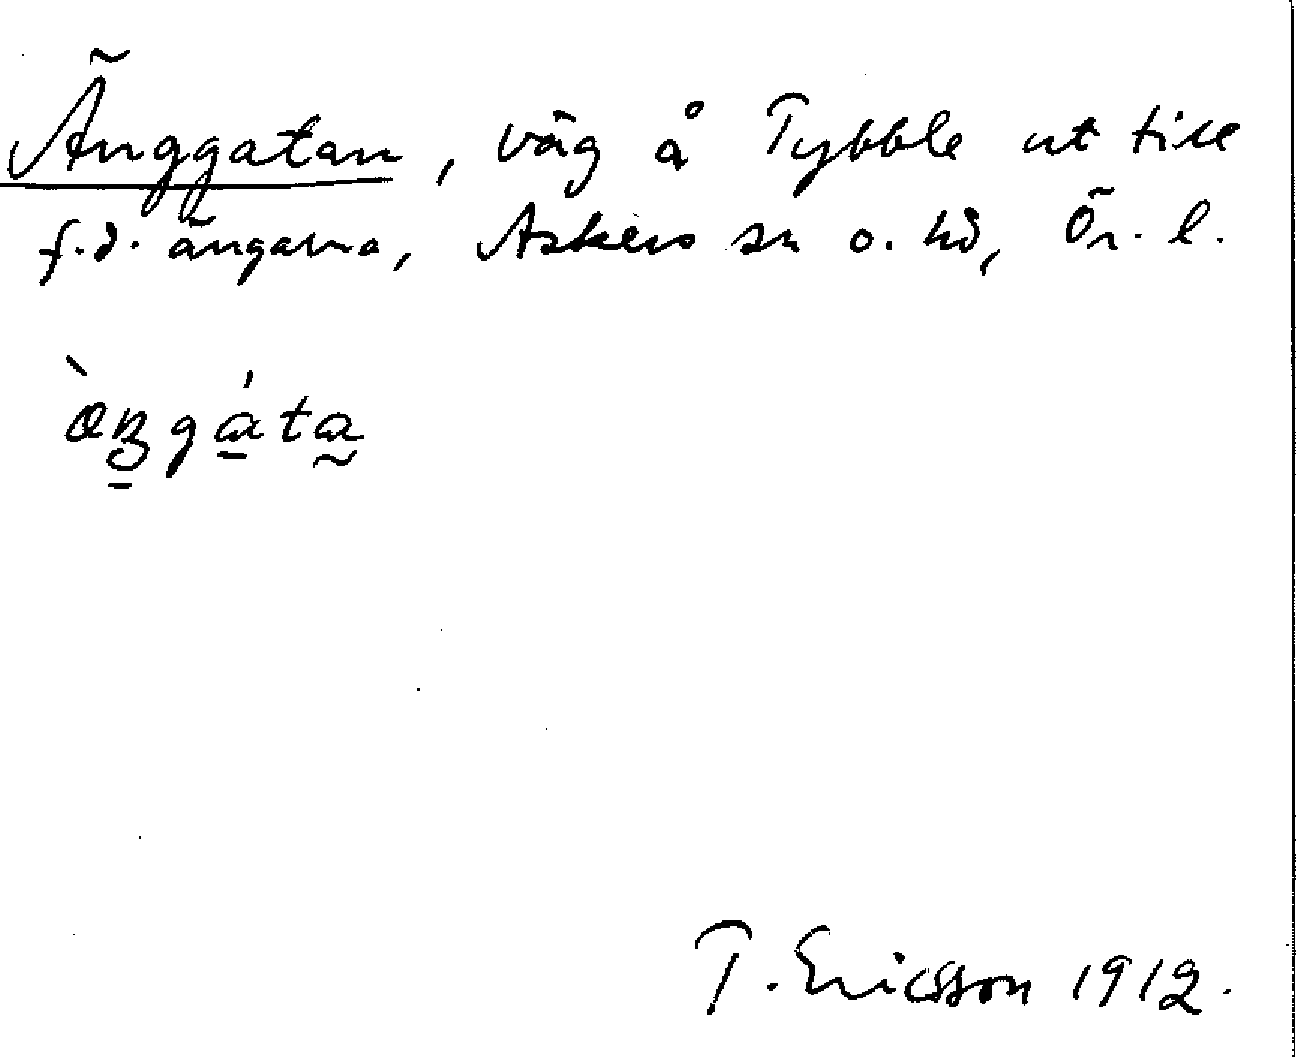 Änggatan, väg å Tybble ut till
f.d. ängarna, Askers sn o. hd, Ör. l.
T. Ericsson 1912.